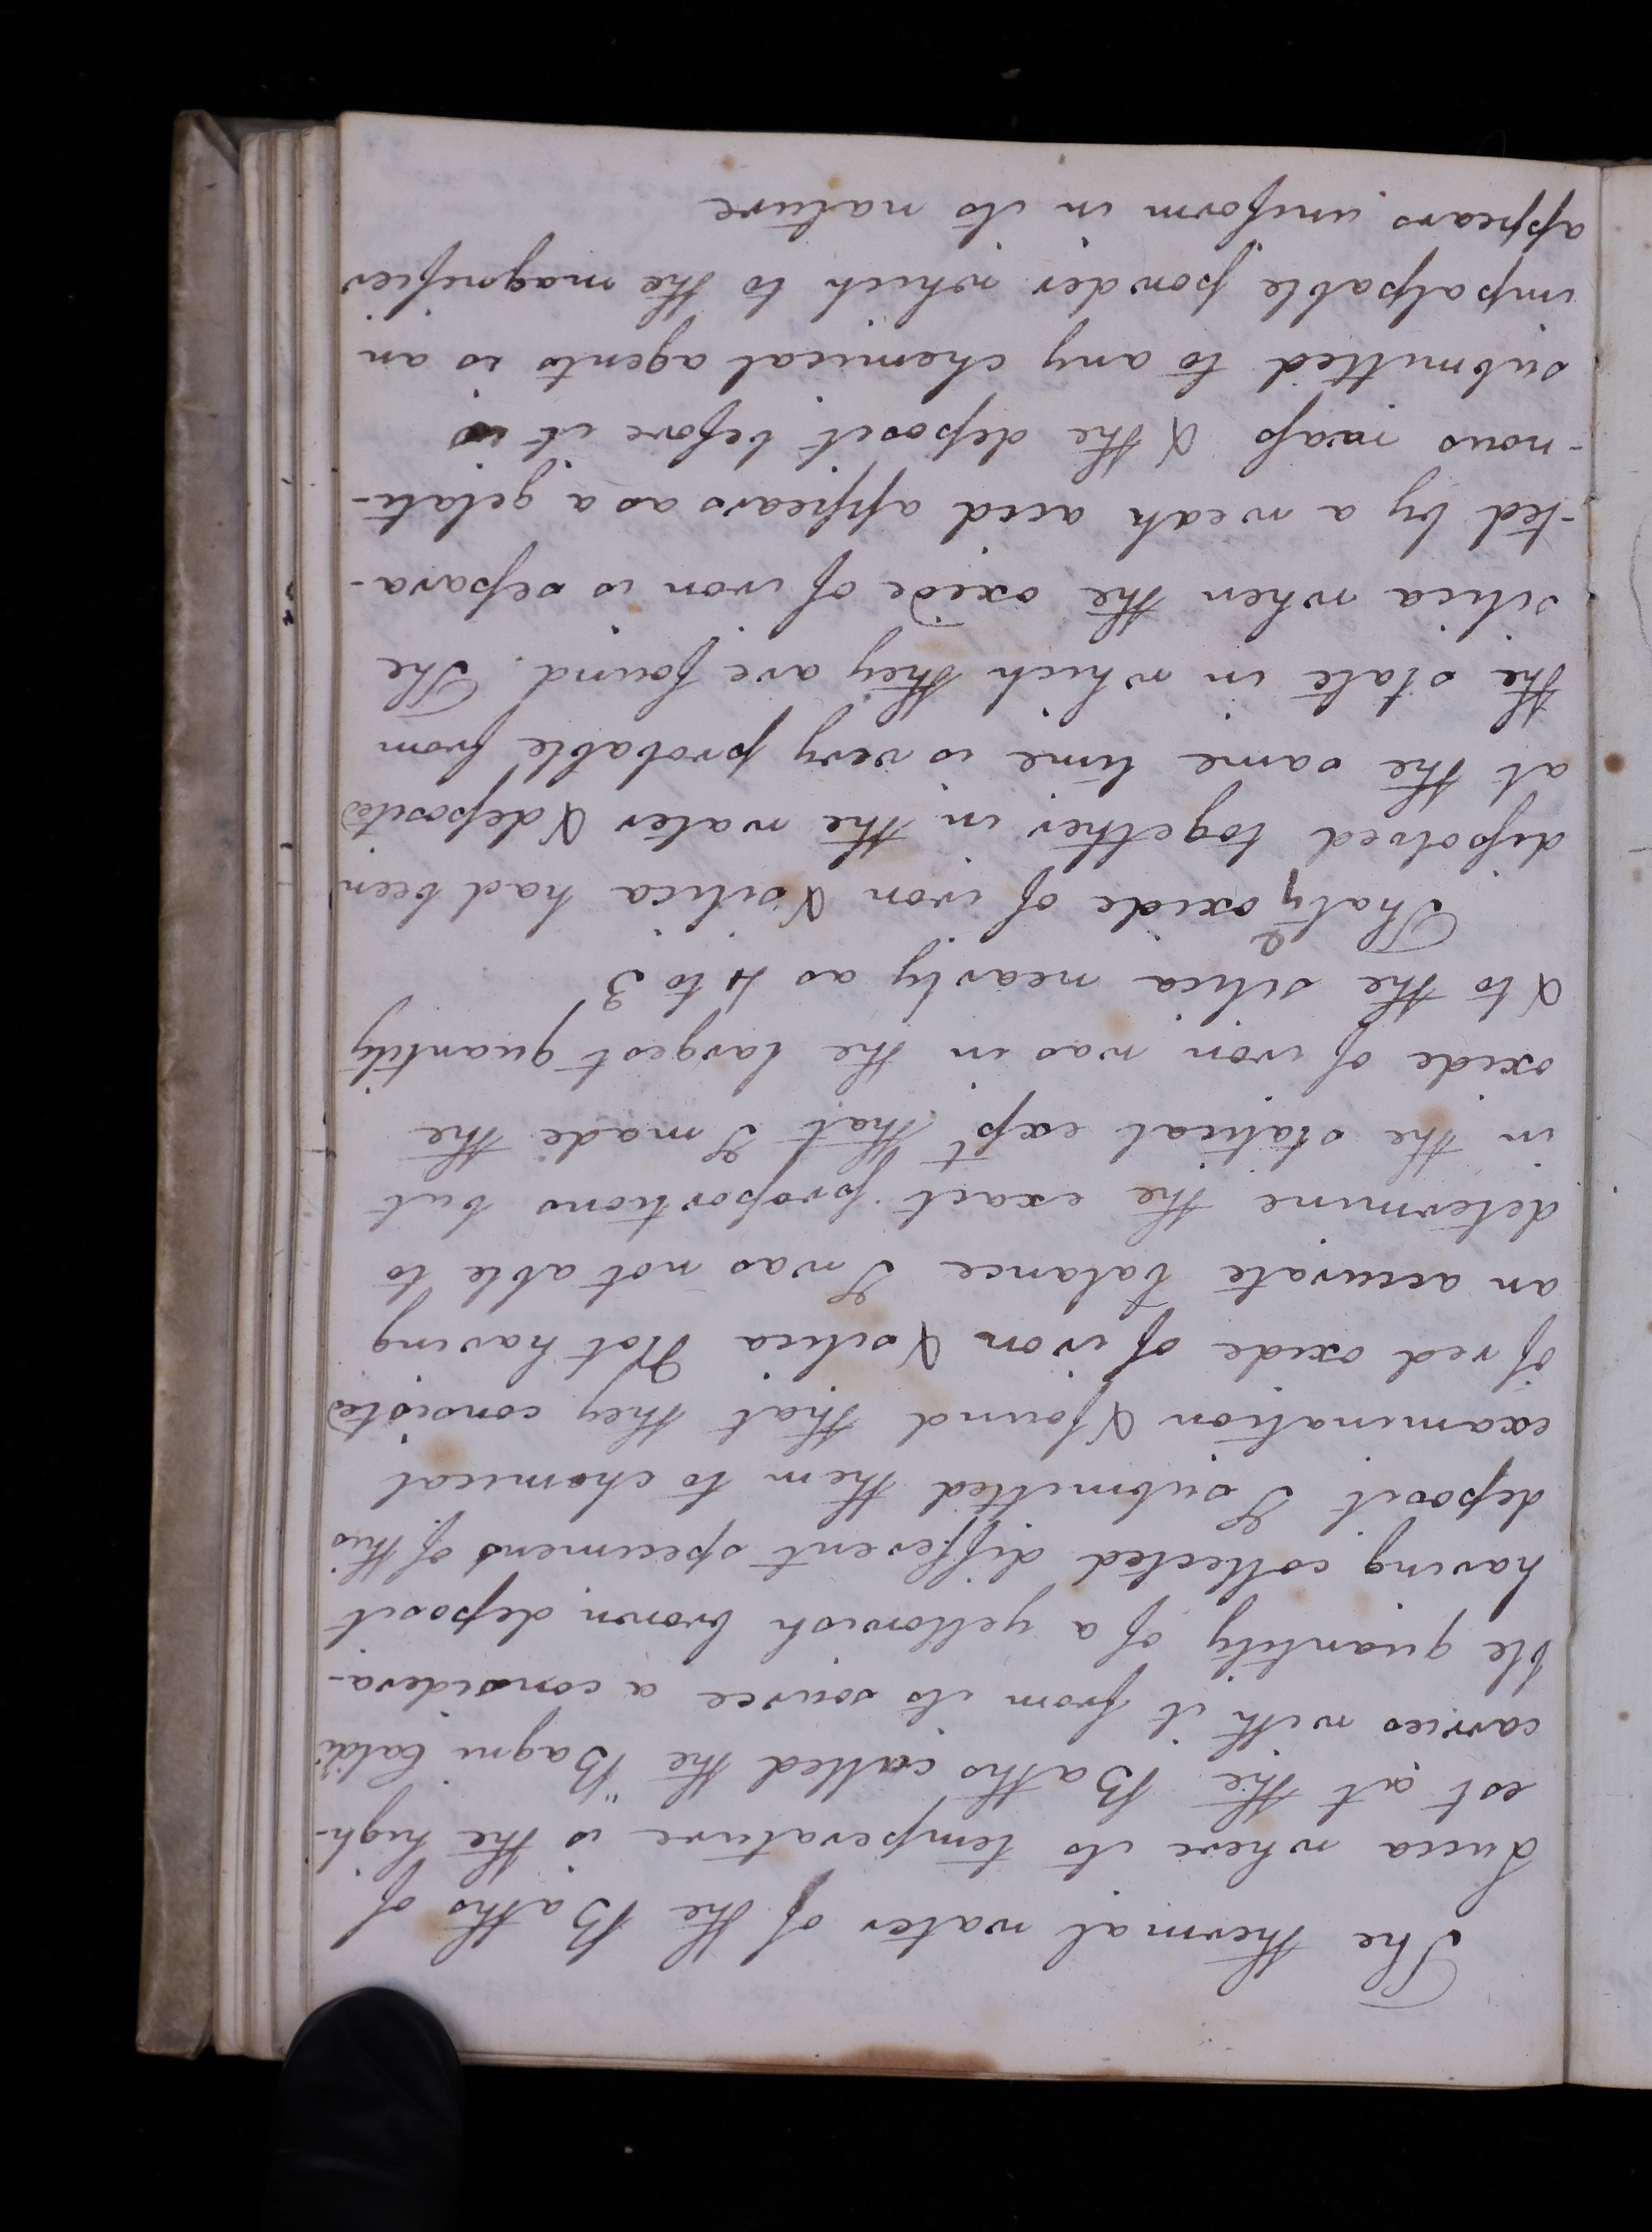 The thermal water of the Baths of
Lucca where its temperature is the high-
est at the Baths called the "Bagni Caldi
carries with it from its source a considera-
ble quantity of a yellowish brown deposit
having collected different specimens of this
deposit I submitted them to chemical
examination & found that they consisted
of red oxide of iron & silica Not having
an accurate balance I was not able to
determine the exact proportions but
in the statical expt that I made the
oxide of iron was in the largest quantity
& to the silica nearly as 4 to 3
That ye oxide of iron & silica had been
dissolved together in the water & deposited
at the same time is very probable from
the state in which they are found. The
silica when the oxide of iron is separa-
-ted by a weak acid appears as a gelati-
-nous mass & the deposit before it is
submitted to any chemical agents is an
impalpable powder which to the magnifier
appears uniform in its nature